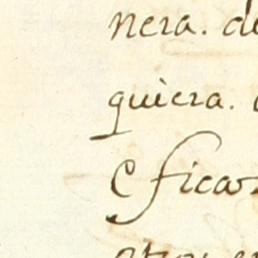 nera. de
quiera.
e ficar